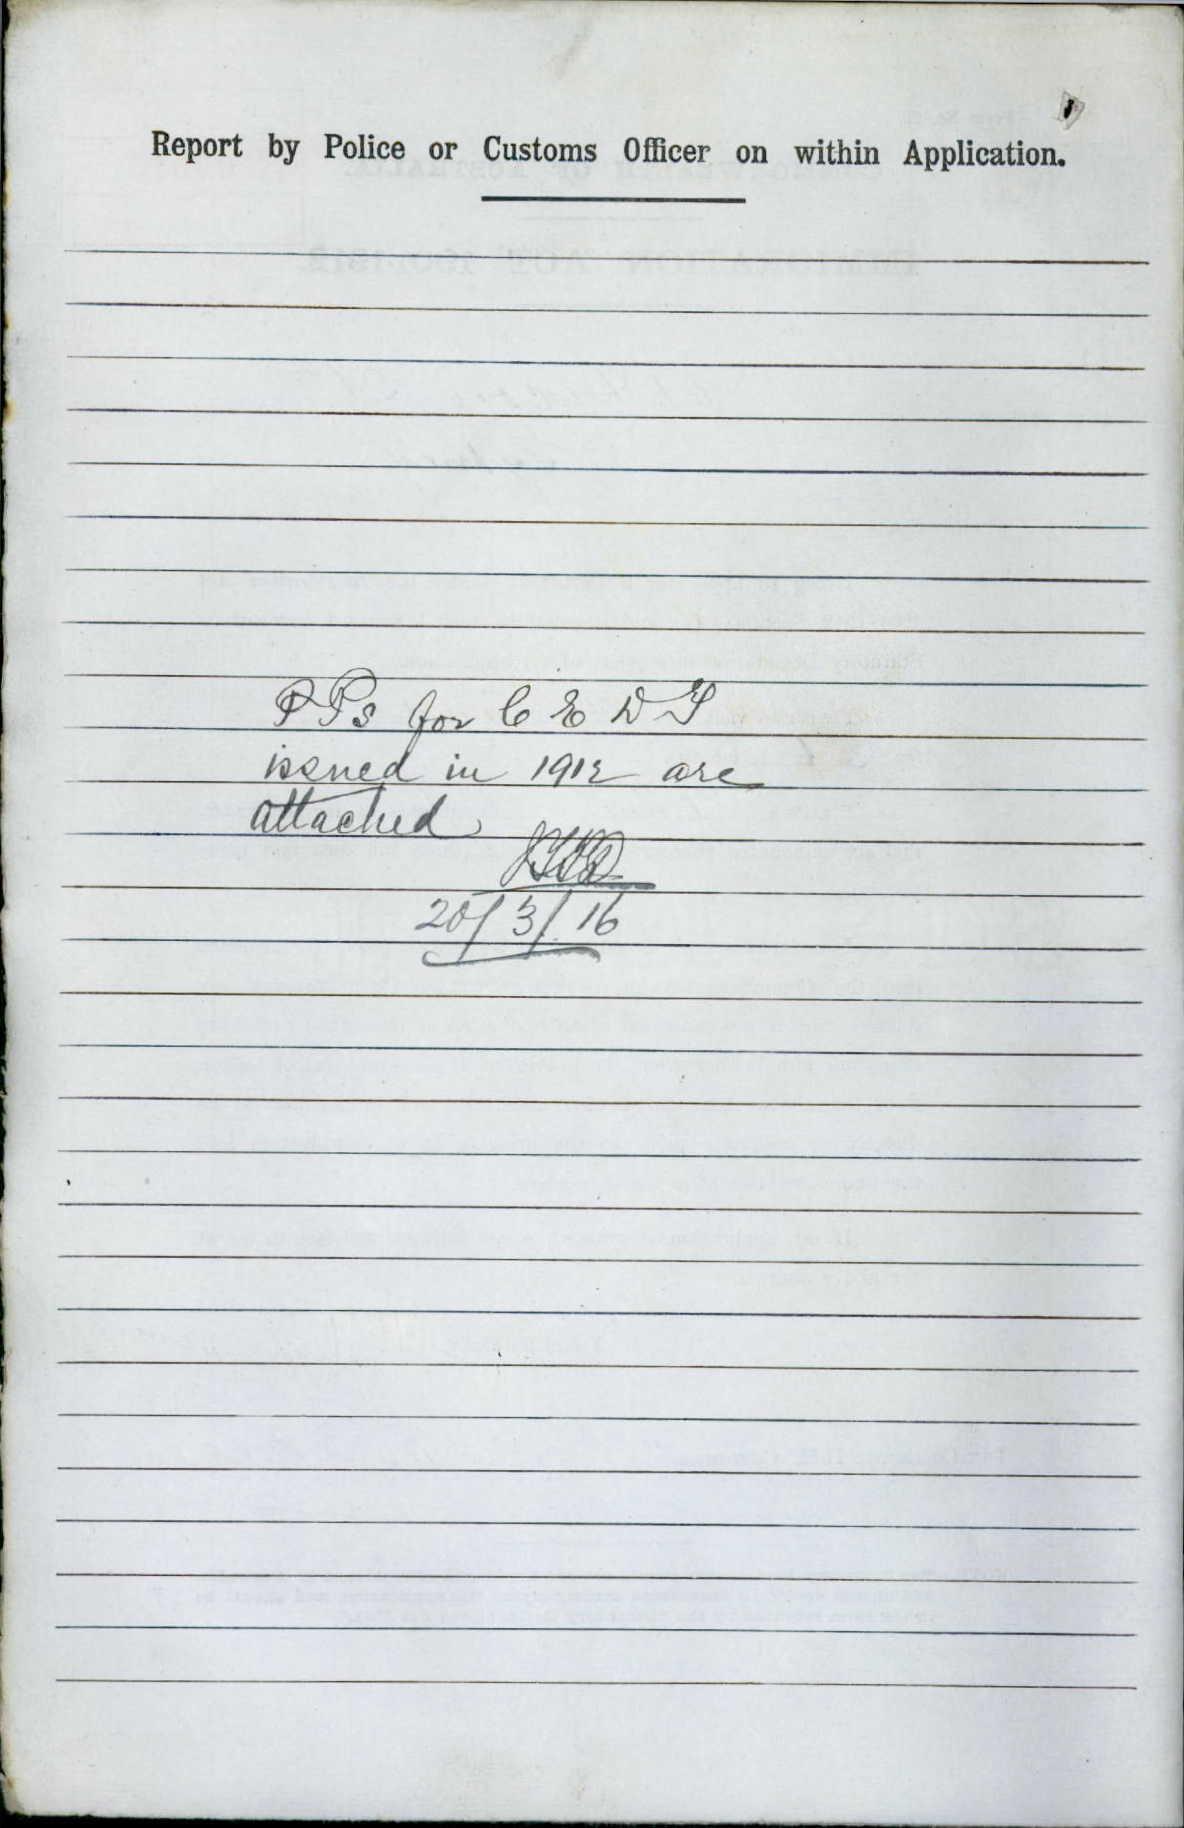 Report by Police or Customs Officer on within Application.
PPs for C E D T
issued in 1912 are
attached
20/3/16